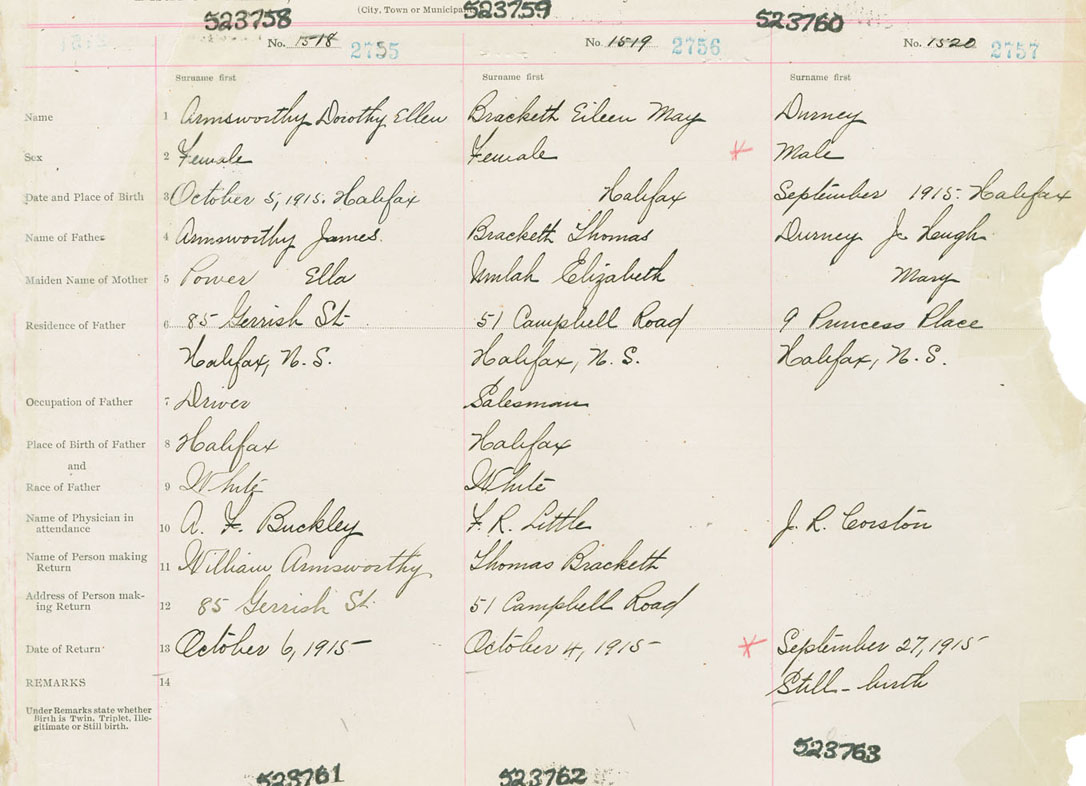 (City, Town or Municipal
523758 523759 523760
No. 1518 2755 No. 1519 2756 No. 1520 2757
Surname first Surname first Surname first
Name 1 Armsworthy Dorothy Ellen Bracketh Eileen May Durney
Sex 2 Female Female Male
Date and Place of Birth 3 October 5, 1915. Halifax Halifax September 1915. Halifax
Name of Father 4 Armsworthy James. Bracketh Thomas Durney J. Hugh
Maiden Name of Mother 5 Power Ella Umlah Elizabeth Mary
Residence of Father 6 85 Gerrish St. 51 Campbell Road 9 Princess Place
Halifax, N. S. Halifax, N. S. Halifax, N. S.
Occupation of Father 7 Driver Salesman
Place of Birth of Father 8 Halifax Halifax
and
Race of Father 9 White White
Name of Physician in
attendance 10 A. F. Buckley F. R. Little J. R. Corston
Name of Person making
Return 11 William Armsworthy Thomas Bracketh
Address of Person mak-
ing Return 12 85 Gerrish St. 51 Campbell Road
Date of Return 13 October 6, 1915 October 4, 1915 September 27, 1915
REMARKS 14 Still-birth
Under Remarks state whether
Birth is Twin, Triplet, Ille-
gitimate or Still birth.
523761 523762 523763